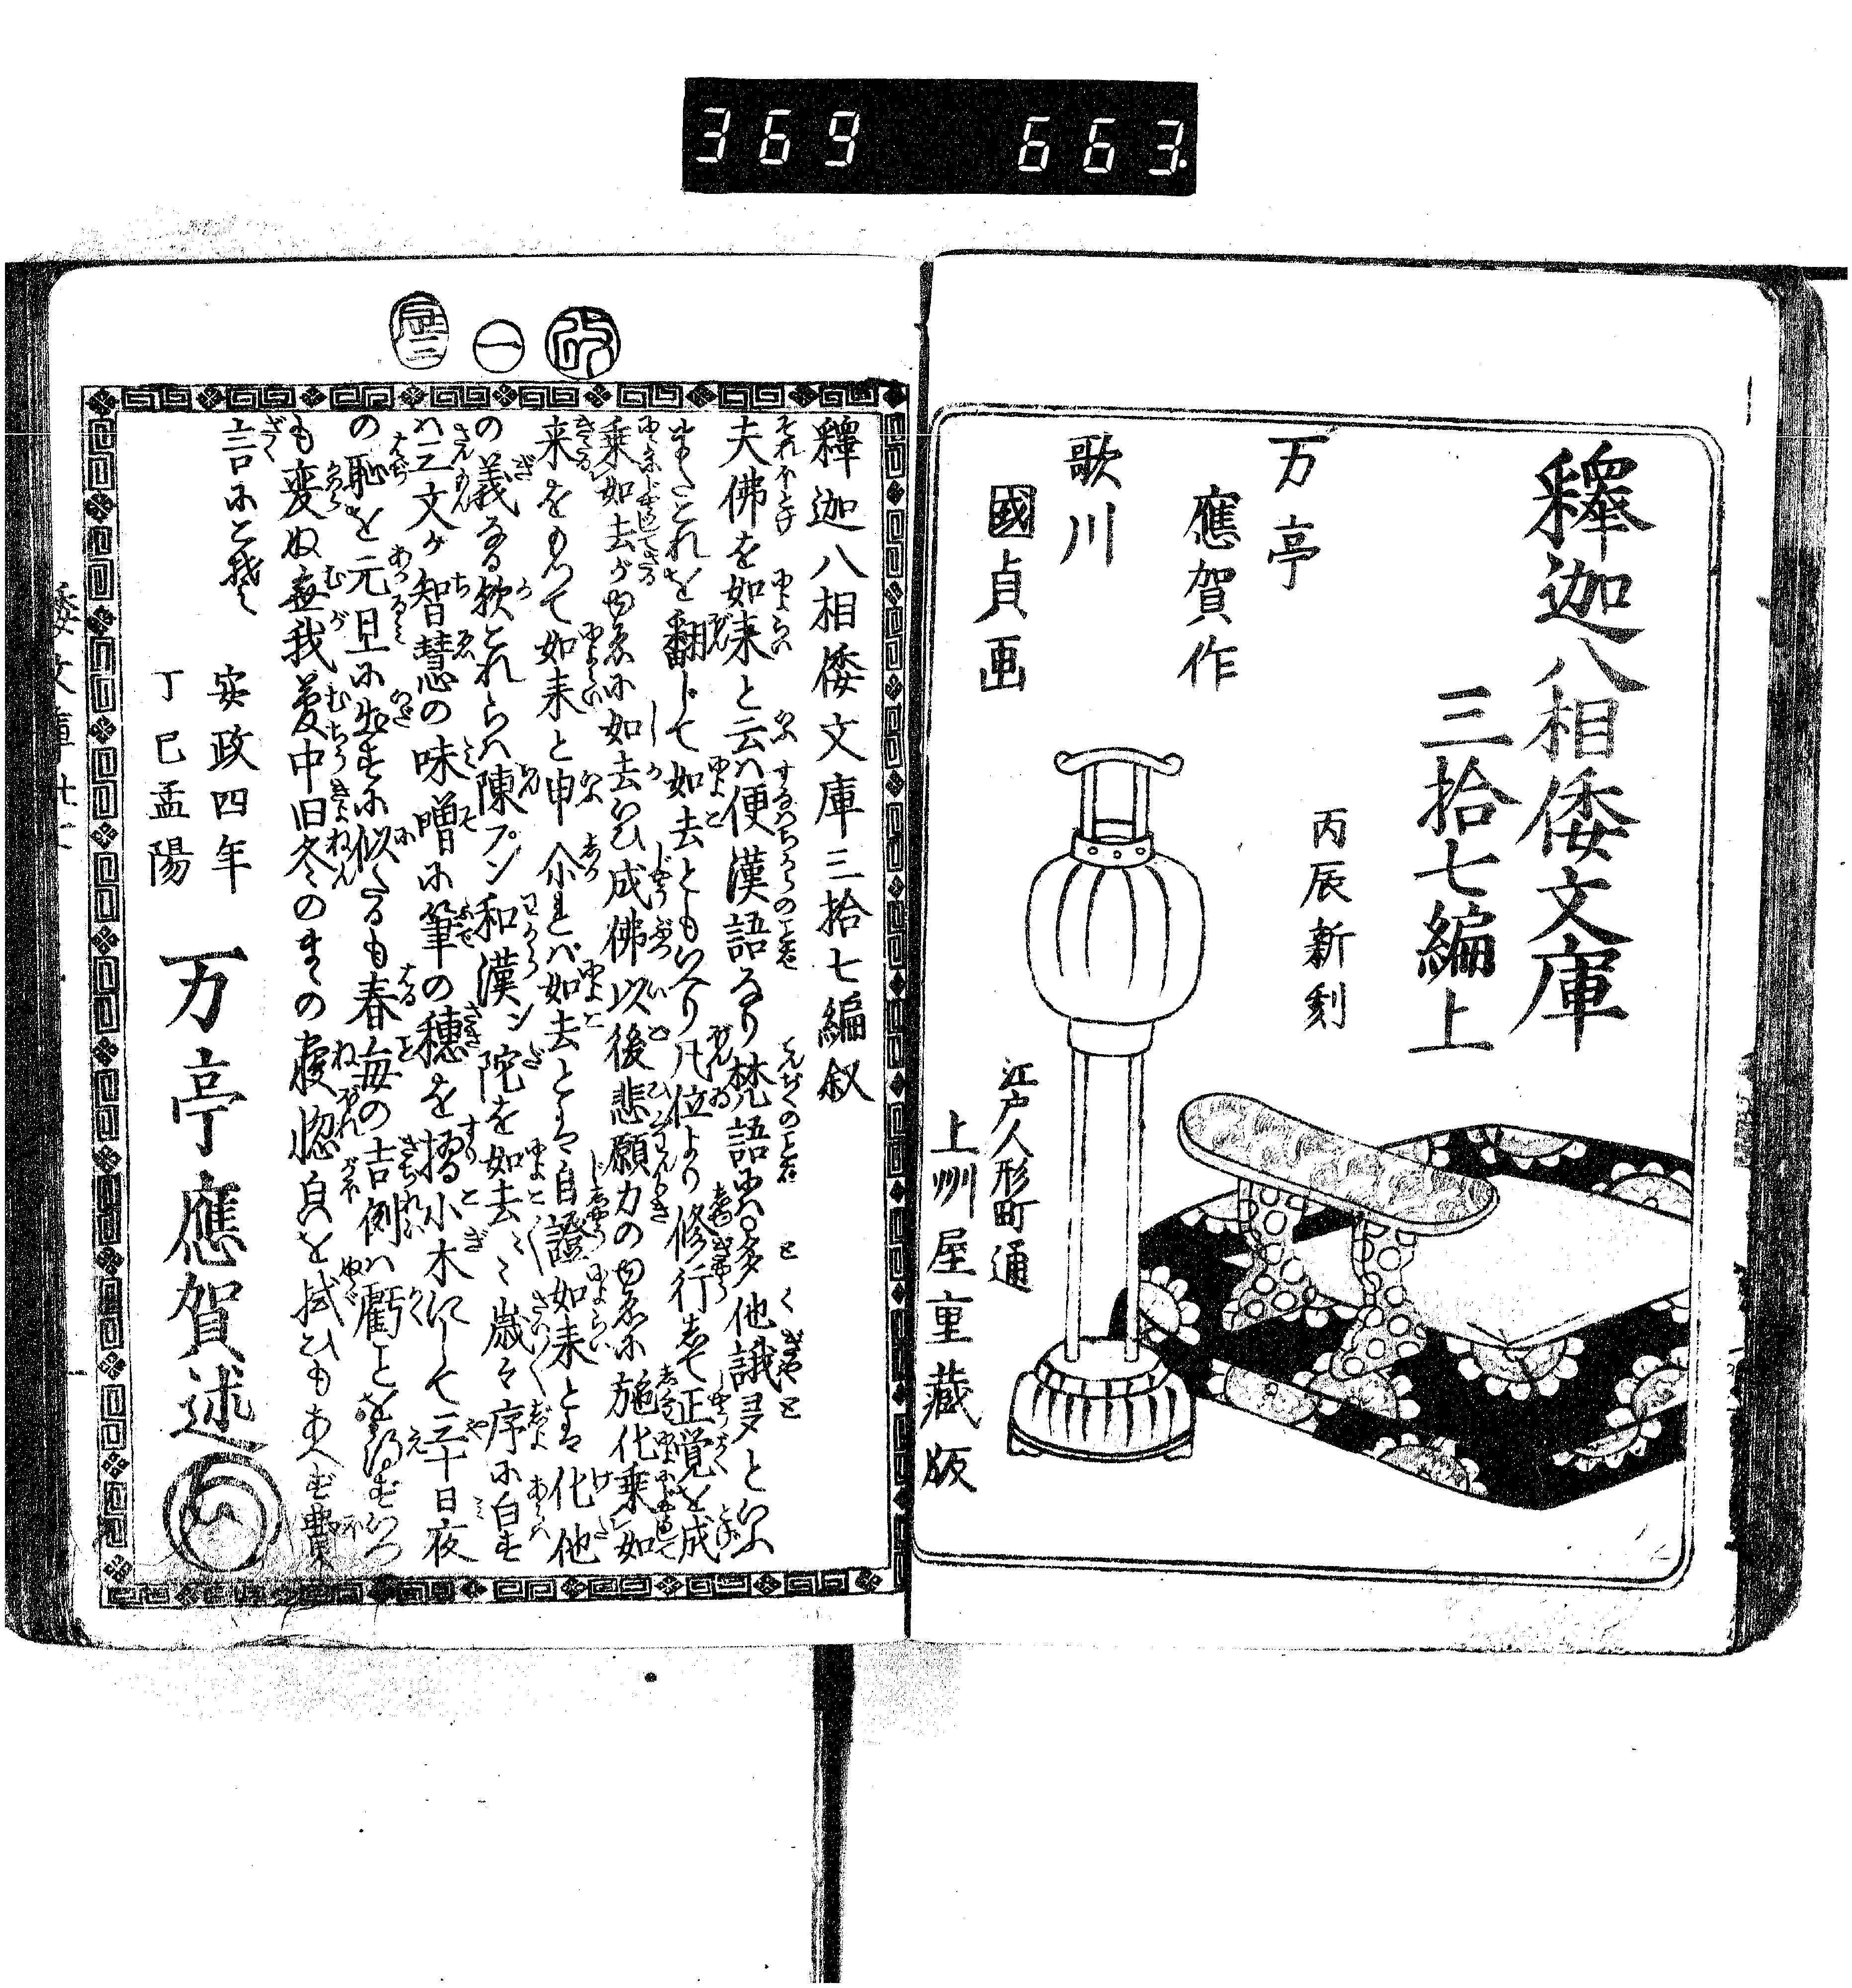 369 663
釋迦八相倭文庫
三拾七編上
丙辰新刻
万亭
應賀作
歌川
國貞画
江戸人形町通
上州屋重藏版
改
一
釋迦八相倭文庫三拾七編叙
夫佛を如来と云ハ便漢語なり梵語にハ多他誐多といふ
またこれを翻じて如去ともいへり凡位より修行して正覚を成
乗如去がゆゑに如去といひ成佛以後悲願力のゆゑに施化乗如
来をもつて如来と申介れバ如去とハ自證如来とハ化他
の義なる歟これらハ陳プン和漢ン陀を如去〻〻歳〻序に白す
ハ三文が智慧の味噌に筆の穂を擂小木にして三十日夜
の恥を元旦に出すに似たるも春毎の吉例ハ虧ことを得ずいつ
も変ぬ無我夢中旧冬のまゝの寝惚貌を拭ひもあへず
言にこそ
安政四年
丁巳孟陽
万亭應賀述